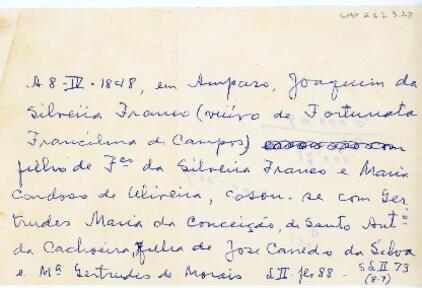 CMP 2.2.2.3.23
A 8-IV-1848, em Amparo, Joaquim da
Silveira Franco (viúvo de Fortunata
Francilina de Campos)
filho de Fco da Silveira Franco e Maria
Cardoso de Oliveira, cason-se com Ger-
trudes Maria da Conceição, de Santo Antº
da Cachoeira, filha de Jose Canedo da Silva
e Mª Gertrudes de Morais L II fls 88 - SL II 73
(8-7)